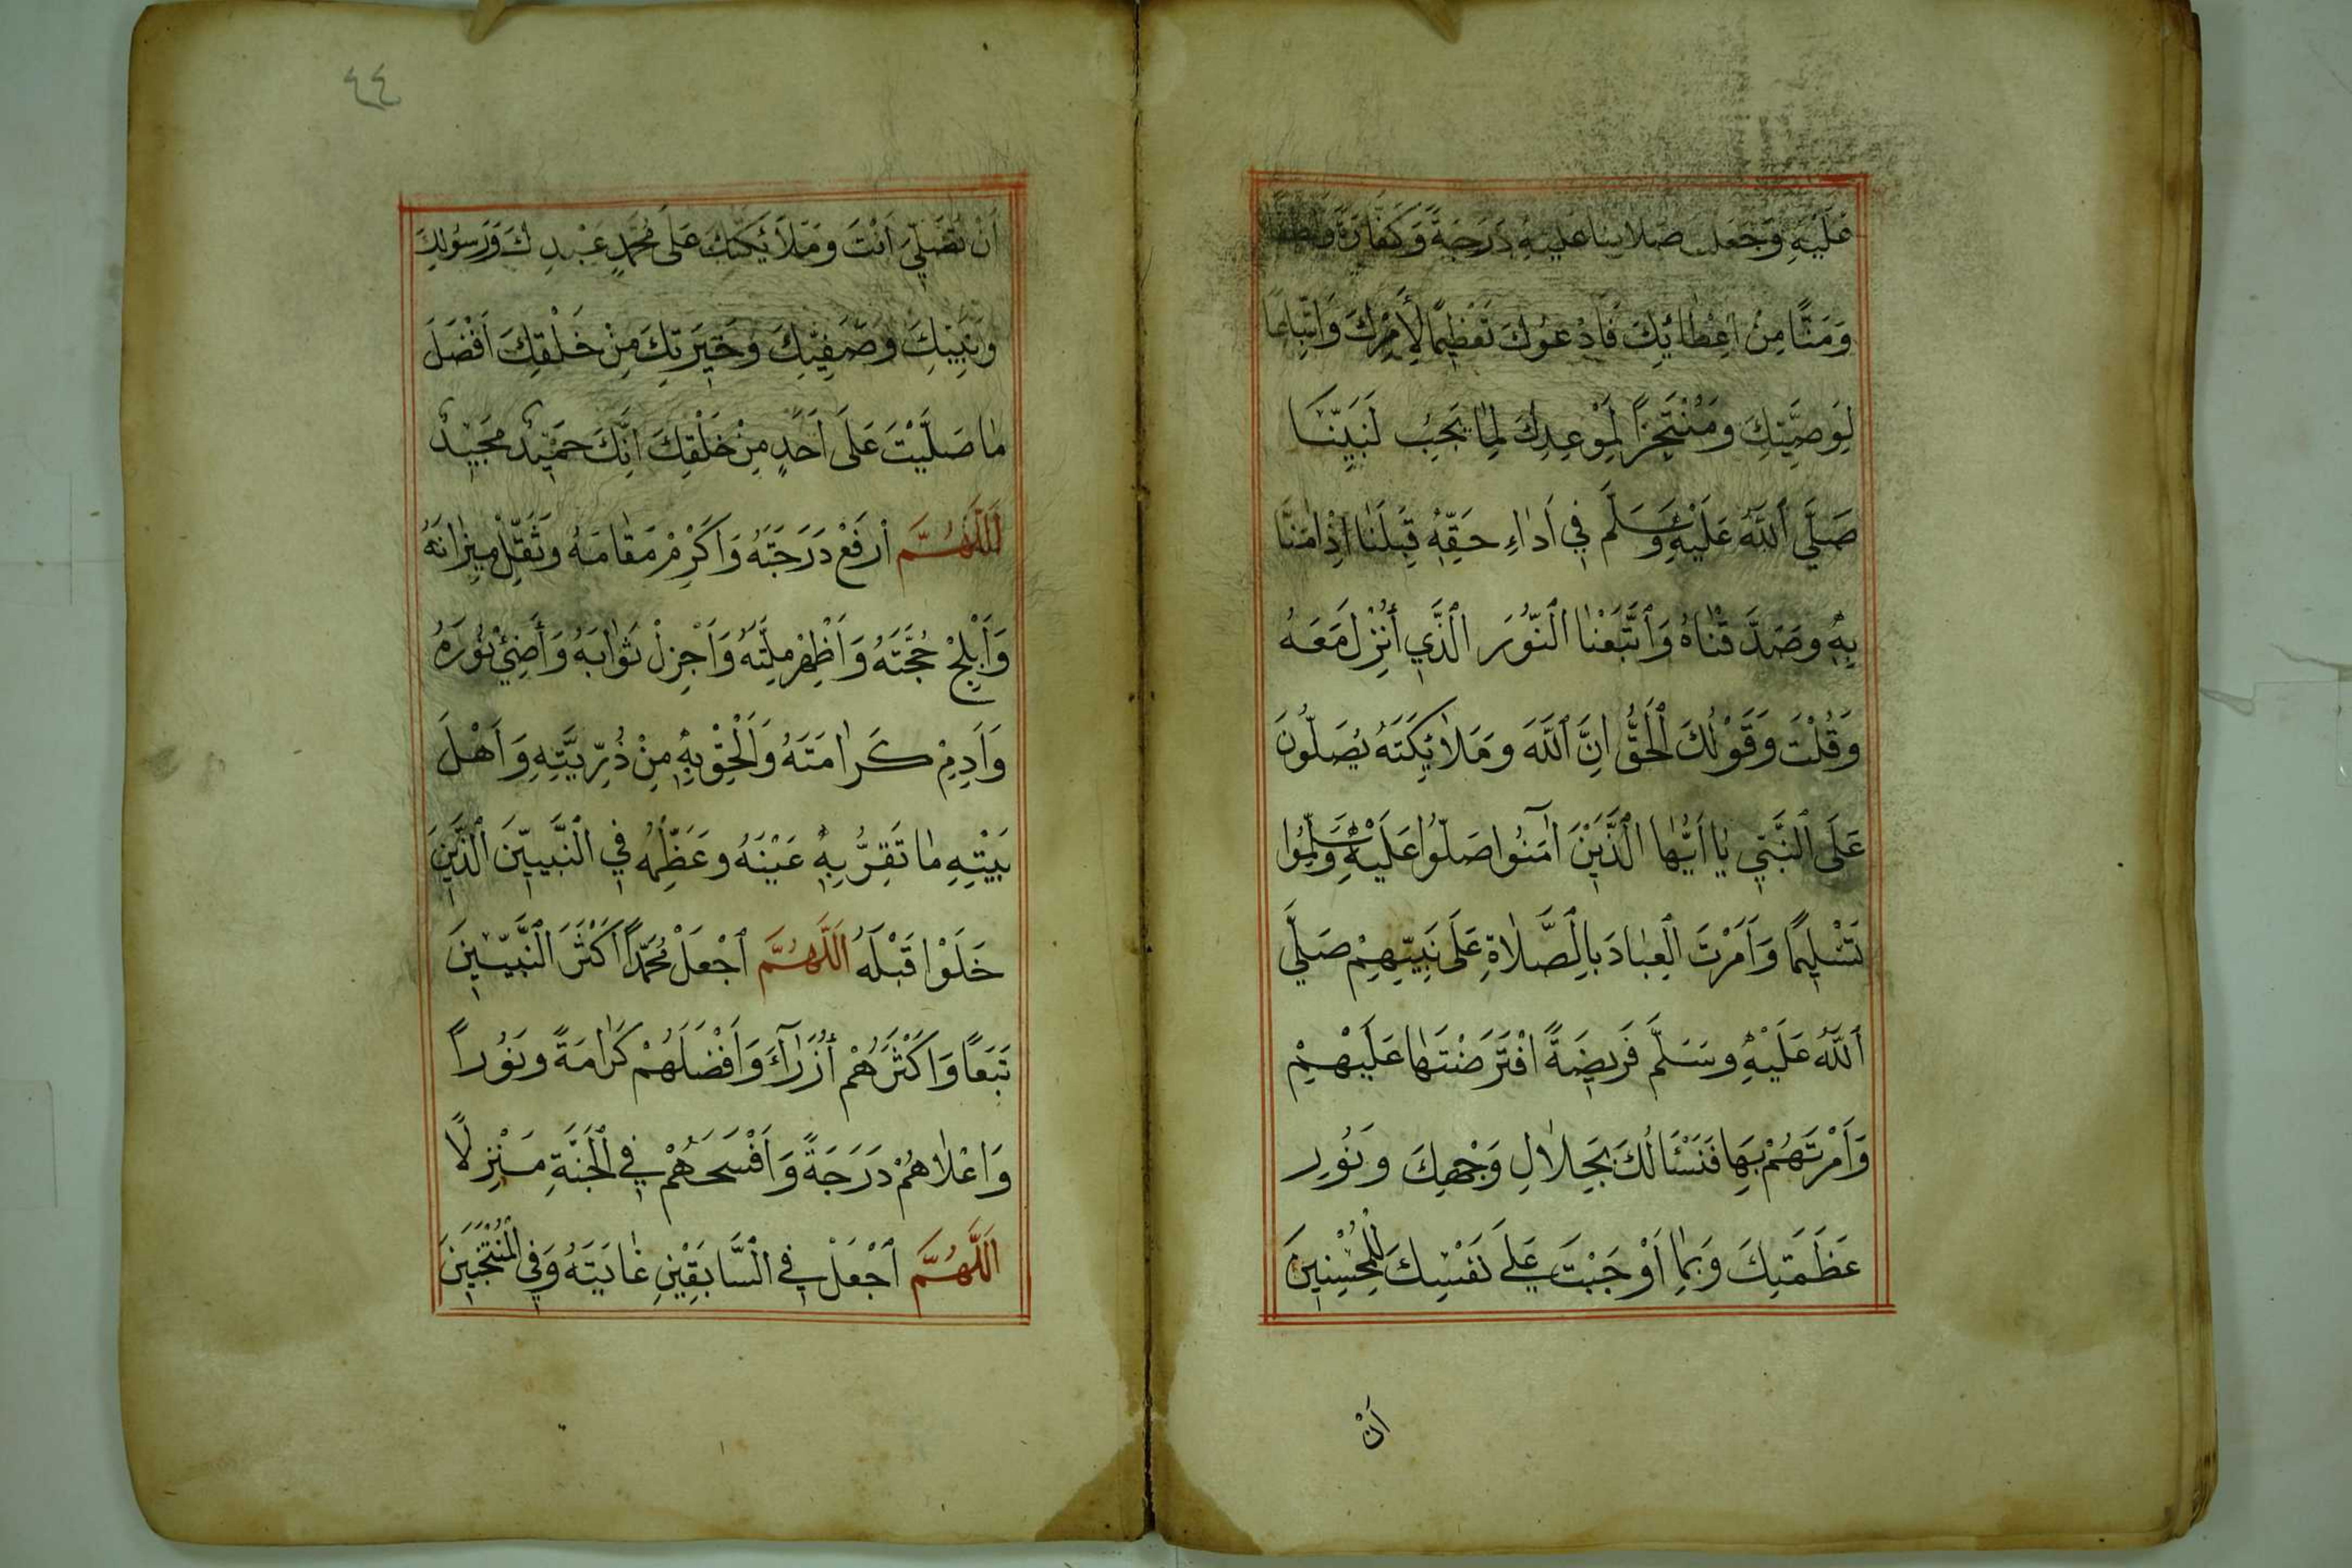 عَلَيْهِ وَجَعَلَ صَلَاتِنَا عَلَيْهِ دَرَجَةً وَكَفَّارَةً وَلُطْفًا
وَمَنًّا مِنْ اِعْطَائِكَ فَاَدْعُوكَ تَعْظِيمًا لِأَمْرِكَ وَاتِّبَاعًا
لِوَصِيَّتِكَ وَمُنْتَجِزًا لِمَوْعِدِكَ لِمَا يَجِبُ لِنَبِيِّنَا
صَلَّي اللّٰهُ عَلَيْهِ وَسَلَّمَ فِي اَدَاءِ حَقِّهِ قِبَلَنَا اِذْ اٰمَنَّا
بِهِ وَصَدَّقْنَاهُ وَاتَّبَعْنَا النُّورَ الَّذِي أُنْزِلَ مَعَهُ
وَقُلْتَ وَقَوْلُكَ الْحَقُّ اِنَّ اللّٰهَ وَمَلَائِكَتَهُ يُصَلُّونَ
عَلَى النَّبِيِّ يَا اَيُّهَا الَّذِينَ اٰمَنُوا صَلُّوا عَلَيْهِ وَسَلِّمُوا
تَسْلِيمًا وَاَمَرْتَ الْعِبَادَ بِالصَّلَاةِ عَلَى نَبِيِّهِمْ صَلَّي
اللّٰهُ عَلَيْهِ وَسَلَّمَ فَرِيضَةً افْتَرَضْتَهَا عَلَيْهِمْ
وَاَمَرْتَهُمْ بِهَا فَنَسْئَالُكَ بِجَلَالِ وَجْهِكَ وَنُورِ
عَظَمَتِكَ وَبِمَا اَوْجَبْتَ عَلَي نَفْسِكَ لِلْمُحْسِنِينَ
اَنْ
٤٤
اَنْ تُصَلِّيَ اَنْتَ وَمَلَائِكَتُكَ عَلَى مُحَمَّدٍ عَبْدِكَ وَرَسُولِكَ
وَنَبِيِّكَ وَصَفِيِّكَ وَخِيَرَتِكَ مِنْ خَلْقِكَ اَفْضَلَ
مَا صَلَّيْتَ عَلَى اَحَدٍ مِنْ خَلْقِكَ اِنَّكَ حَمِيدٌ مَجِيدٌ
اَللّٰهُمَّ ارْفَعْ دَرَجَتَهُ وَاَكْرِمْ مَقَامَهُ وَثَقِّلْ مِيزَانَهُ
وَاَبْلِجْ حُجَّتَهُ وَاَظْهِرْ مِلَّتَهُ وَاَجْزِلْ ثَوَابَهُ وَأَضِئْ نُورَهُ
وَاَدِمْ كَرَامَتَهُ وَاَلْحِقْ بِهِ مِنْ ذُرِّيَّتِهِ وَاَهْلِ
بَيْتِهِ مَا تَقِرُّ بِهِ عَيْنَهُ وَعَظِّمْهُ فِي النَّبِيِّينَ الَّذِينَ
خَلَوْا قَبْلَهُ اَللّٰهُمَّ اجْعَلْ مُحَمَّدًا اَكْثَرَ النَّبِيِّينَ
تَبَعًا وَاَكْثَرَهُمْ أُزَرَآءَ وَاَفْضَلَهُمْ كَرَامَةً وَنُورًا
وَاَعْلَاهُمْ دَرَجَةً وَاَفْسَحَهُمْ فِي الْجَنَّةِ مَنْزِلًا
اَللّٰهُمَّ اجْعَلْ فِي السَّابِقِينِ غَايَتَهُ وَفِي الْمُنْتَخَبِينَ